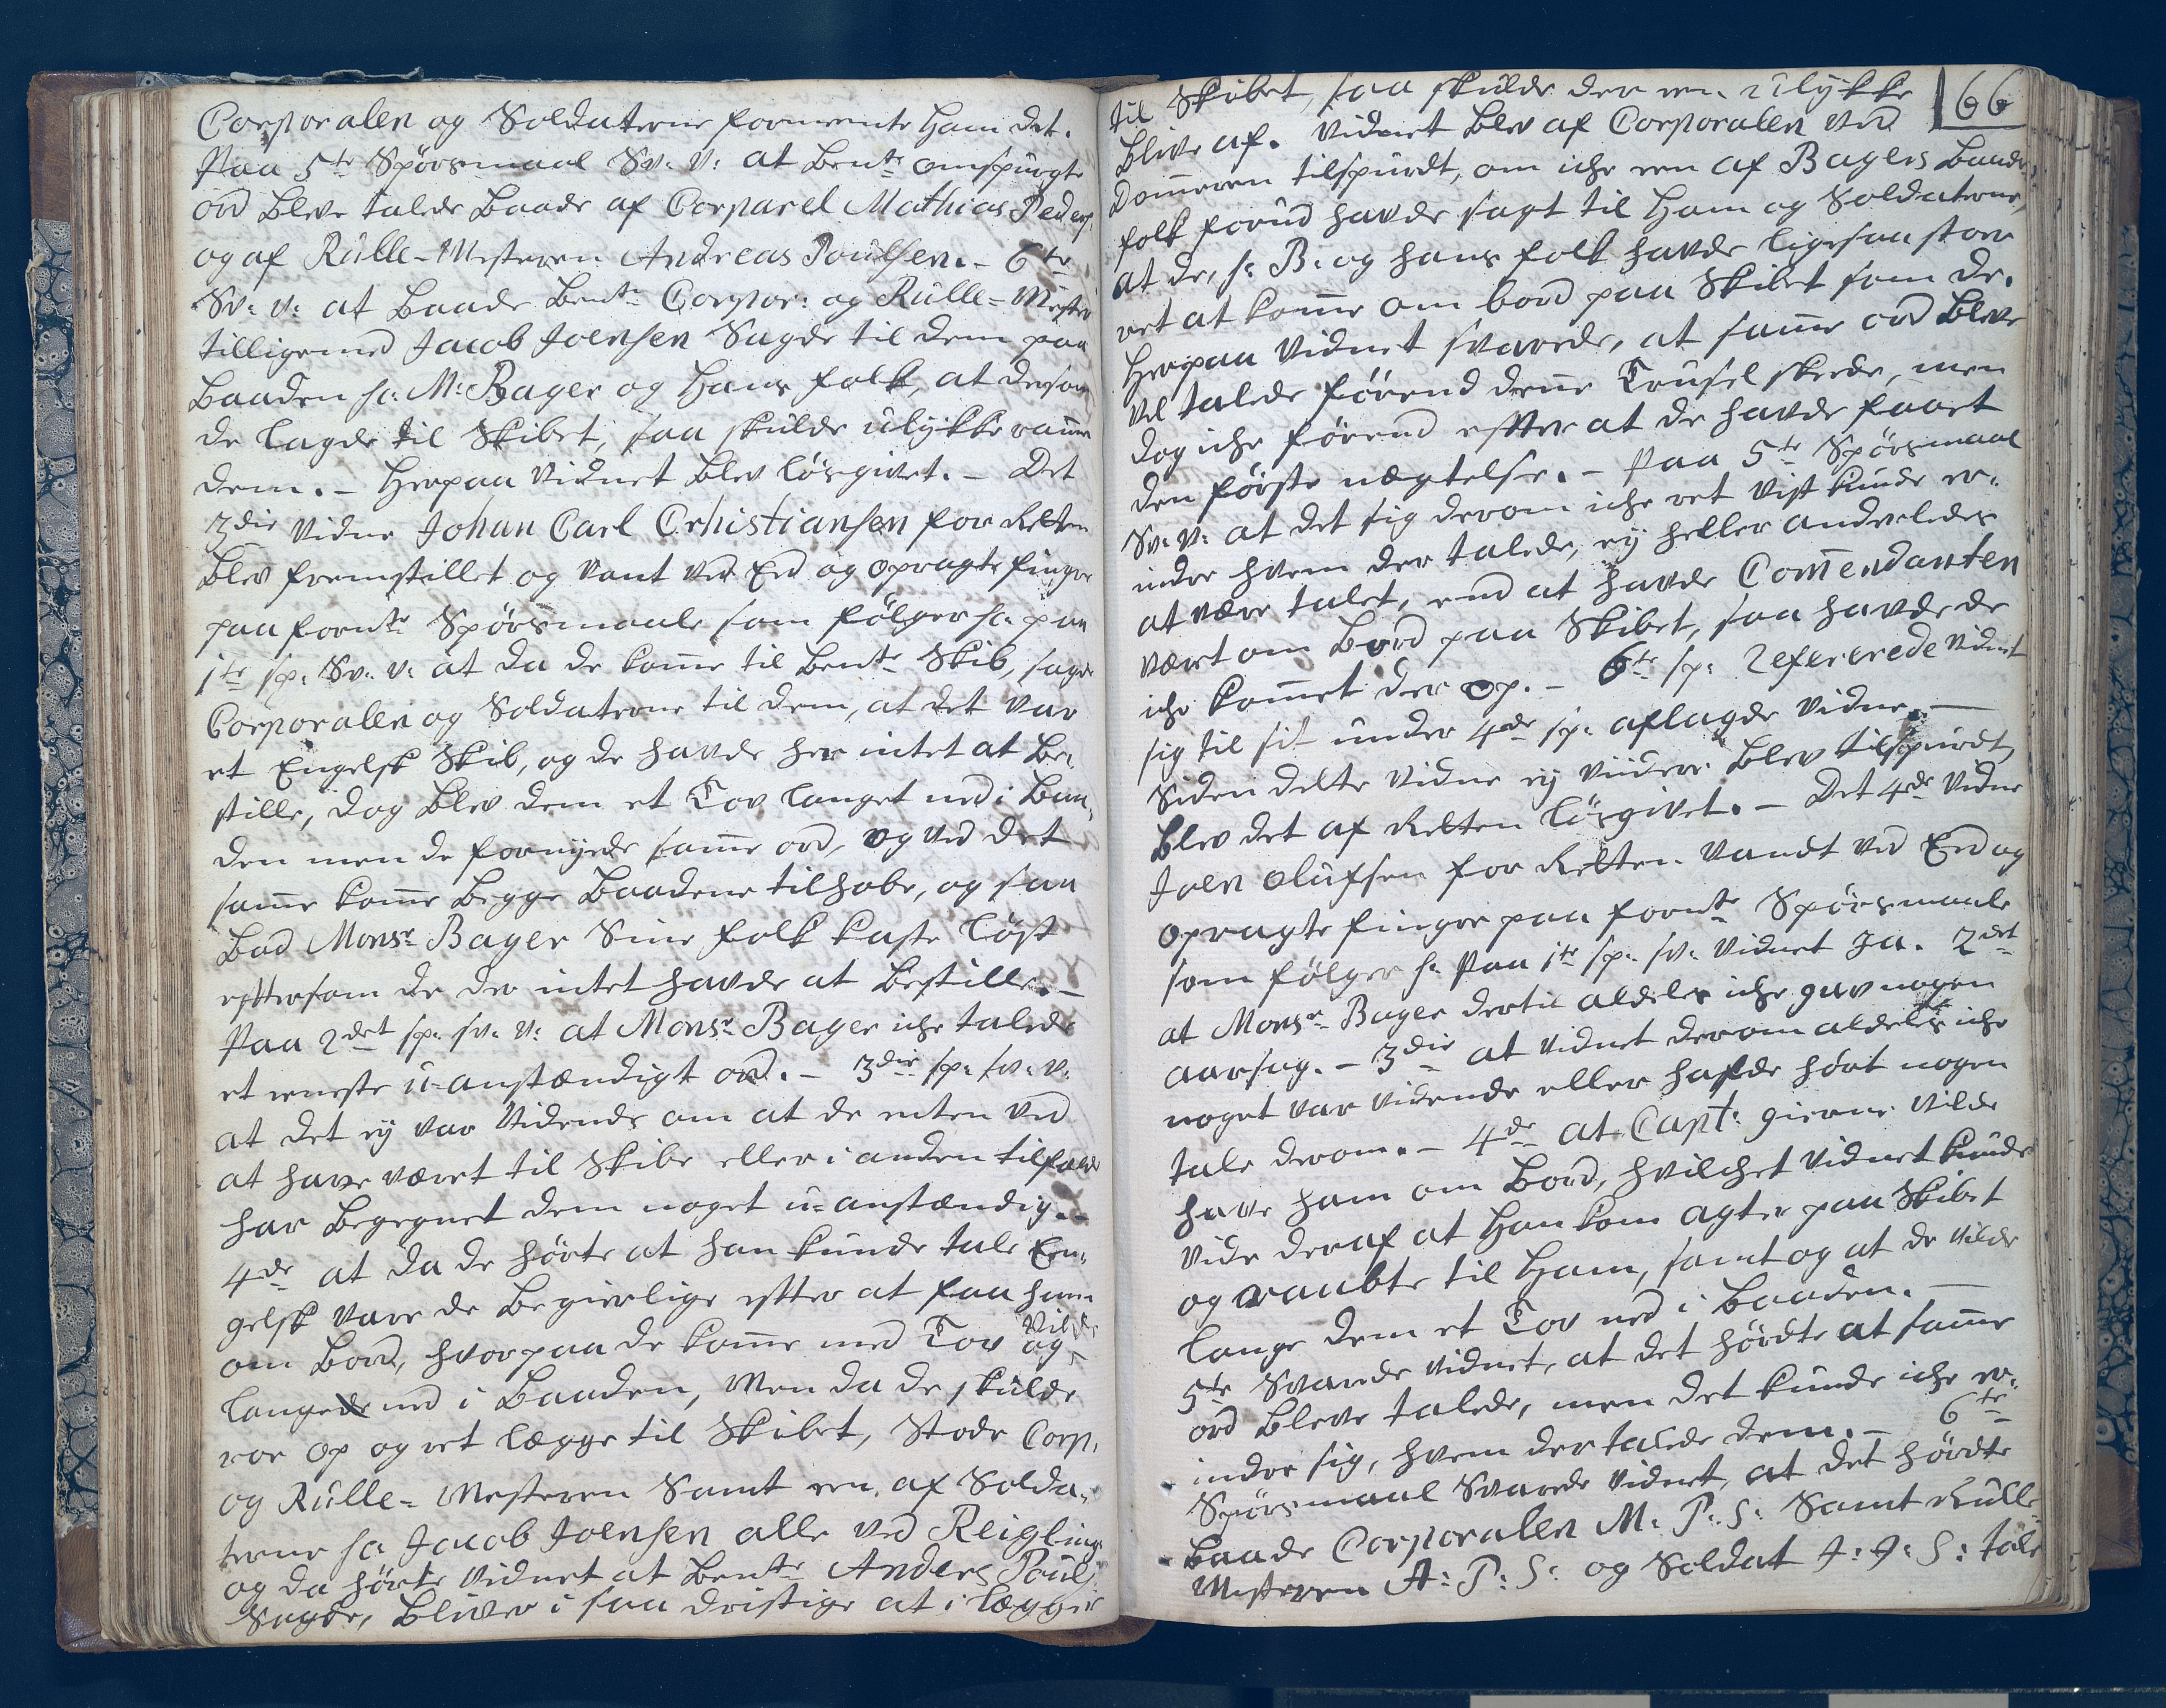 Corporalen og Soldaterne formente Ham det.
Paa 5te Spørsmaal Sv. V: at bente omspurgte
ord bleve talede baade af Corparel Mathias Peders
og af Rulle-Mesteren Andreas Poulsen. - 6te
Sv: V: at baade bente Corpor: og Rulle-Mester
tilligemed Jacob Joensen Sagde til dem paa
baaden sc: Mr Bager og Hans folk, at dersom
de lagde til Skibet, saa skulde ulykke ramme
dem. - Herpaa Vidnet blev løsgivet. - Det
3die Vidne Johan Carl Crhistiansen for Retten
blev fremstillet og vant ved Eed og opragte finger
paa fornte Spørsmaale som følger sc: paa
1te sp: Sv. V: at da de kom̄e til bente Skib, sagde
Corporalen og Soldaterne til dem, at det var
et Engelsk Skib, og de havde her intet at be,
stille, dog blev dem et Tov langet ned i Baa,
den men de fornyede sam̄e ord, og ved det
sam̄e kom̄e begge baadene tilhobe, og saa
bad Monsr Bager Sine folk kaste løst
eftersom de der intet havde at bestille. -
Paa 2det sp: sv: V: at Monsr Bager iche talede
et eneste u-anstændigt ord. - 3die sp: sv: V:
at det ej var Vidende om at de enten ved
at have været til Skibe eller i anden tilfælde
har begegnet dem noget u-anstændig. -
4de at da de hørte at han kunde tale En,
gelsk vare de begierlige efter at faa ham
om bord, hvorpaa de kom̄e med Tov og vilde
langede ned i baaden, Men da de skulde
roe op og ret lægge til Skibet, Stode Corp,
og Rulle-Mesteren Samt een af Solda,
terne sc: Jacob Joensen alle ved Reigling
og da hørte Vidnet at bente Anders Pouls:
Sagde, bliver i saa dristige at i lægger
166
til Skibet, saa skulde der een ulykke
blive af. Vidnet blev af Corporalen ved
Dom̄eren tilspurdt, om iche een af Bagers baads
folk forud havde sagt til Ham og Soldaterne,
at de, sc: B: og hans folk havde ligesaa stor
ret at kom̄e om bord paa Skibet som de.
Herpaa Vidnet svarede, at sam̄e ord bleve
vel talede førend den̄e Trusel skede, men
dog iche førend efter at de havde faaet
den første nægtelse. - Paa 5te Spørsmaal
Sv: V: at det sig derom iche ret vist kunde er,
indre hvem der talede, ej heller anderledes
at være talet, end at havde Com̄endanten
været om bord paa Skibet, saa havde de
iche kom̄et der op. - 6te sp: Refererede Vidnet
sig til sit under 4de sp: aflagde Vidne. -
Siden dette Vidne ej viidere blev tilspurdt,
blev det af Retten løsgivet. - Det 4de Vidne
Joen Olufsen for Retten. Vandt ved Eed og
opragte finger paa fornte Spørsmaale
som følger sc: Paa 1te sp: sv: Vidnet Ja. 2det
at Monsr Bager dertil aldeles iche gav nogen
aarsag. - 3die at Vidnet derom aldeles iche
noget var Vidende eller hafde hört nogen
tale derom. - 4de at Capt: gierne Vilde
have ham om Bord, hvilchet Vidnet kunde
vide deraf at Han kom agter paa Skibet
og raabte til Ham, samt og at de vilde
lange dem et Tov ned i baaden.
5te Svarede Vidnet, at det hørdte at sam̄e
ord bleve talede, men det kunde iche er,
indre sig, hvem der talede dem. - 6te
Spørsmaal Svarede Vidnet, at det hørdte
baade Corporalen M: P: S: Samt Rulle-
Mesteren A: P: S: og Soldat J: J: S: tale